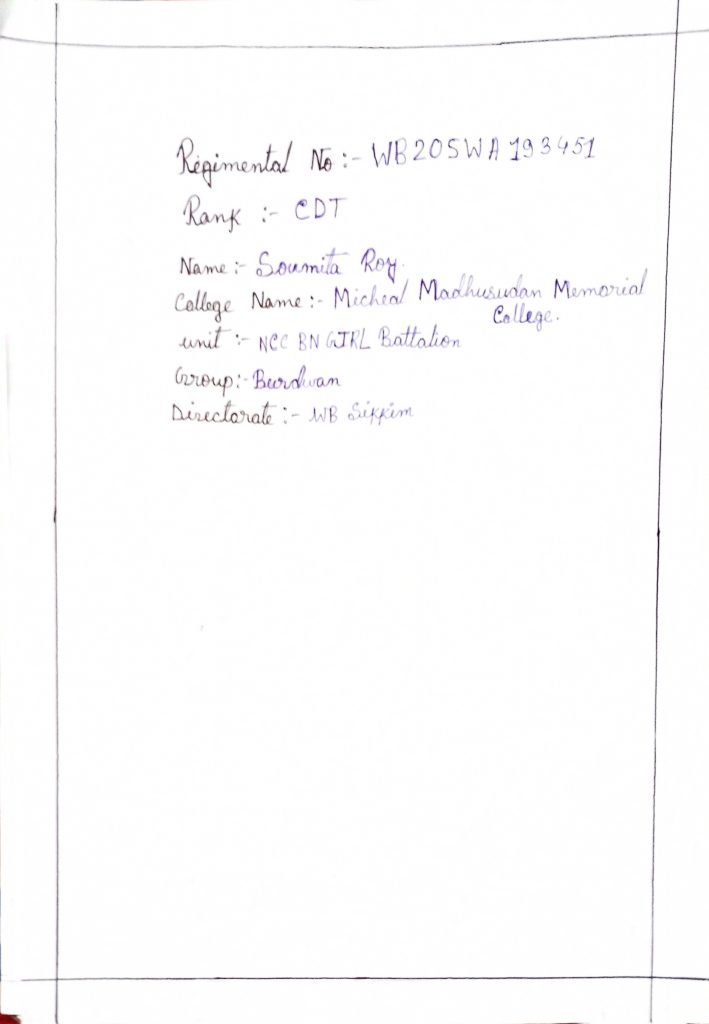 Regimental No :- WB20SWA193451
Rank :- CDT
Name :- Soumita Roy.
College Name :- Micheal Madhusudan Memorial
College.
unit :- NCC BN GIRL Battalion
Group :- Burdwan
Directorate :- WB Sikkim